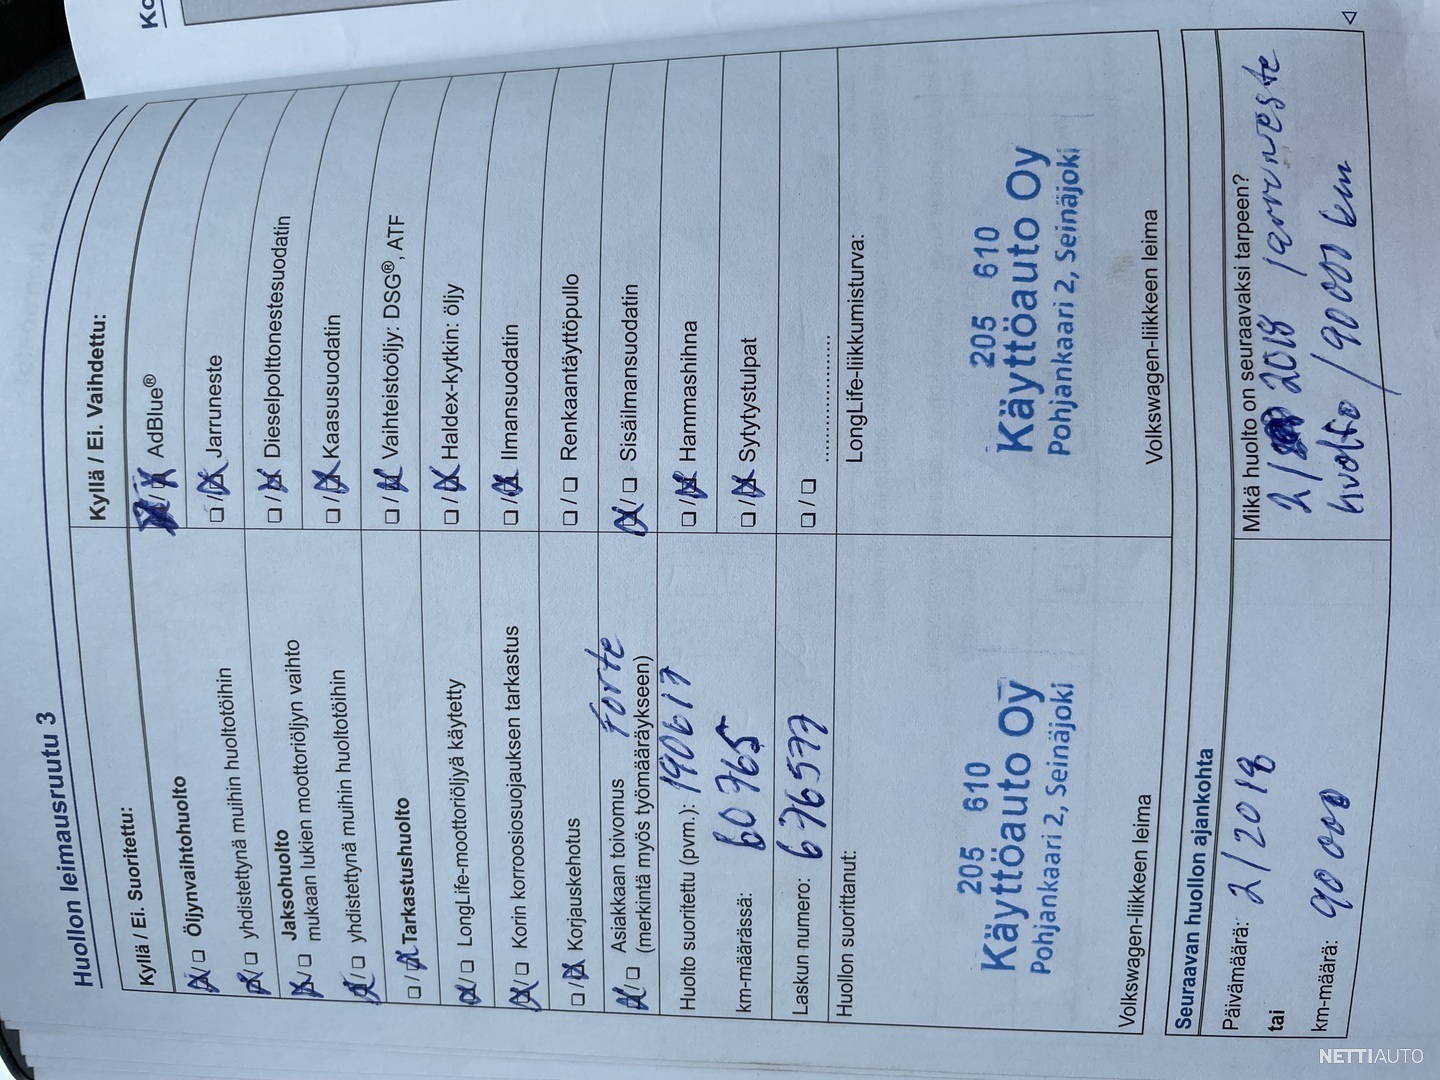 Huollon leimausruutu 3
Kyllä / Ei. Suoritettu:
Öljynvaihtohuolto
yhdistettynä muihin huoltotöihin
Jaksohuolto
mukaan lukien moottoriöljyn vaihto
yhdistettynä muihin huoltotöihin
Tarkastushuolto
LongLife-moottoriöljyä käytetty
Korin korroosiosuojauksen tarkastus
Korjauskehotus
Asiakkaan toivomus Forte
(merkintä myös työmääräykseen)
Huolto suoritettu (pvm.): 190617
km-määrässä: 60765
Laskun numero: 676577
Huollon suorittanut:
205 610
Käyttöauto Oy
Pohjankaari 2, Seinäjoki
Volkswagen-liikkeen leima
Kyllä / Ei. Vaihdettu:
AdBlue®
Jarruneste
Dieselpolttonestesuodatin
Kaasusuodatin
Vaihteistoöljy: DSG®, ATF
Haldex-kytkin: öljy
Ilmansuodatin
Renkaantäyttöpullo
Sisäilmansuodatin
Hammashihna
Sytytystulpat
LongLife-liikkumisturva:
205 610
Käyttöauto Oy
Pohjankaari 2, Seinäjoki
Volkswagen-liikkeen leima
Seuraavan huollon ajankohta
Päivämäärä: 2/2018
tai
km-määrä: 90 000
Mikä huolto on seuraavaksi tarpeen?
2/ 2018 jarruneste
huolto / 90 000 km
NETTIAUTO